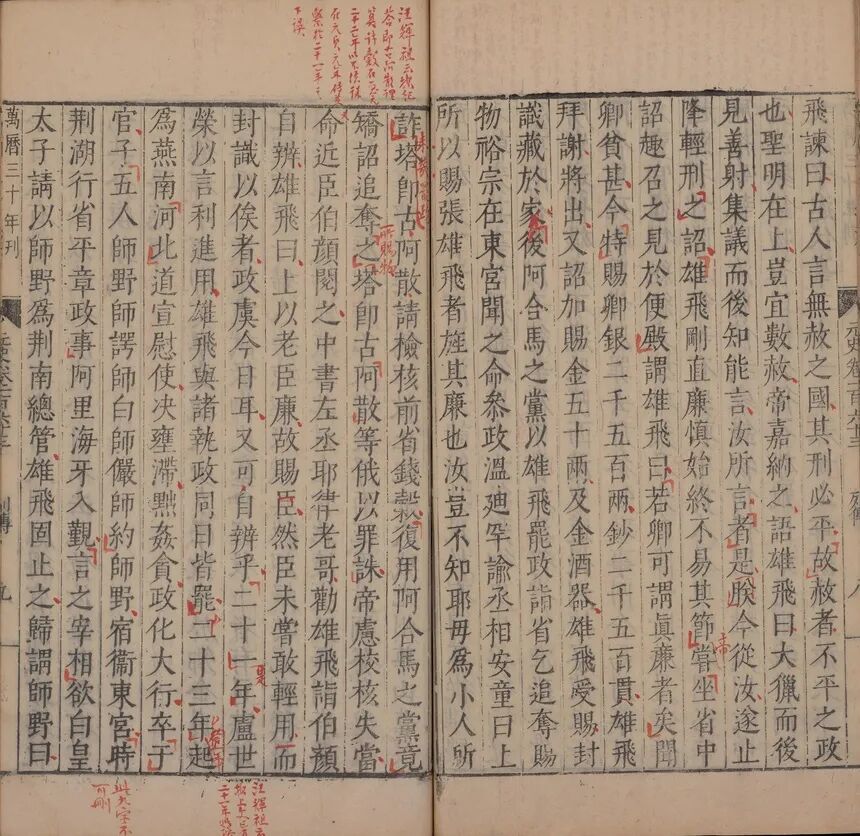 飛諫曰古人言無赦之國其刑必平故赦者不平之政
也聖明在上豈宜數赦帝嘉納之語雄飛曰大獵而後
見善射集議而後知能言汝所言者是朕今從汝遂止
降輕刑之詔雄飛剛直廉慎始終不易其節嘗坐省中
帝
詔趣召之見於便殿謂雄飛曰若卿可謂眞廉者矣聞
卿貧甚今特賜卿銀二千五百兩鈔二千五百貫雄飛
拜謝將出又詔加賜金五十兩及金酒器雄飛受賜封
識藏於家後阿合馬之黨以雄飛罷政詣省乞追奪賜
物裕宗在東宮聞之命叅政溫廸罕諭丞相安童曰上
所以賜張雄飛者旌其廉也汝豈不知耶毋爲小人所
詐塔即古阿散請檢核前省錢穀復用阿合馬之黨竟
矯詔追奪之塔即古阿散等俄以罪誅帝慮校核失當
所賜物
命近臣伯顔閱之中書左丞耶律老哥勸雄飛詣伯顔
自辨雄飛曰上以老臣廉故賜臣然臣未嘗敢輕用而
封識以俟者政虞今日耳又可自辨乎二十一年盧世
榮以言利進用雄飛與諸執政同日皆罷二十三年起
爲燕南河北道宣慰使决壅滯黜姦貪政化大行卒于
官子五人師野師諤師白師儼師約師野宿衞東宮時
荆湖行省平章政事阿里海牙入覲言之宰相欲白皇
太子請以師野爲荆南總管雄飛固止之歸謂師野曰
萬曆三十年刊
列傳
九
汪輝祖云